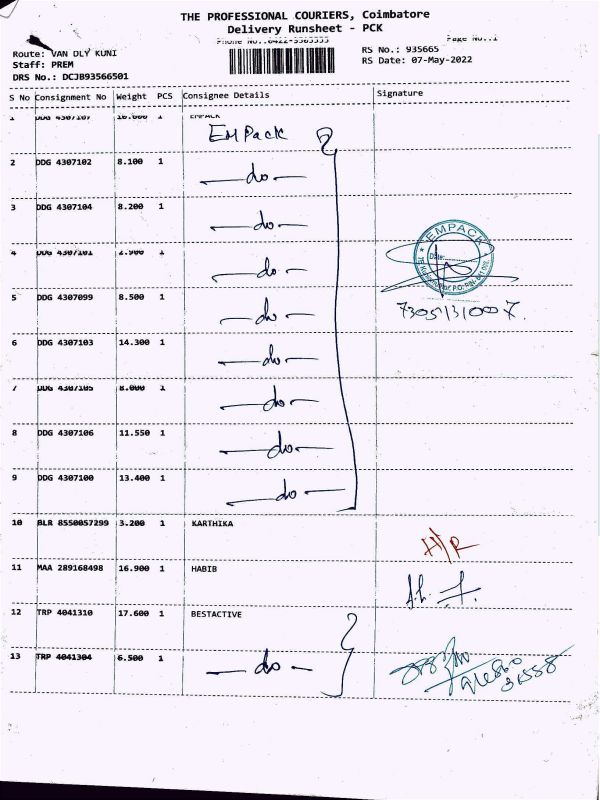 THE PROFESSIONAL COURIERS, Coimbatore
Delivery Runsheet - PCK
Route: VAN DLY KUNI
Staff: PREM
DRS No.: DCJB93566501
RS No.: 935665
RS Date: 07-May-2022
S No Consignment No Weight PCS Consignee Details Signature
1 DDG 4307107 10.600 1 EMPACK
EmPack
2 DDG 4307102 8.100 1 — do —
3 DDG 4307104 8.200 1 — do —
EMPACK
4 DDG 4307101 2.900 1 — do —
5 DDG 4307099 8.500 1 — do —
6 DDG 4307103 14.300 1 — do —
7 DDG 4307105 8.000 1 — do —
8 DDG 4307106 11.550 1 — do —
9 DDG 4307100 13.400 1 — do —
10 BLR 8550057299 3.200 1 KARTHIKA H/R
11 MAA 289168498 16.900 1 HABIB
12 TRP 4041310 17.600 1 BESTACTIVE
13 TRP 4041304 6.500 1 — do —